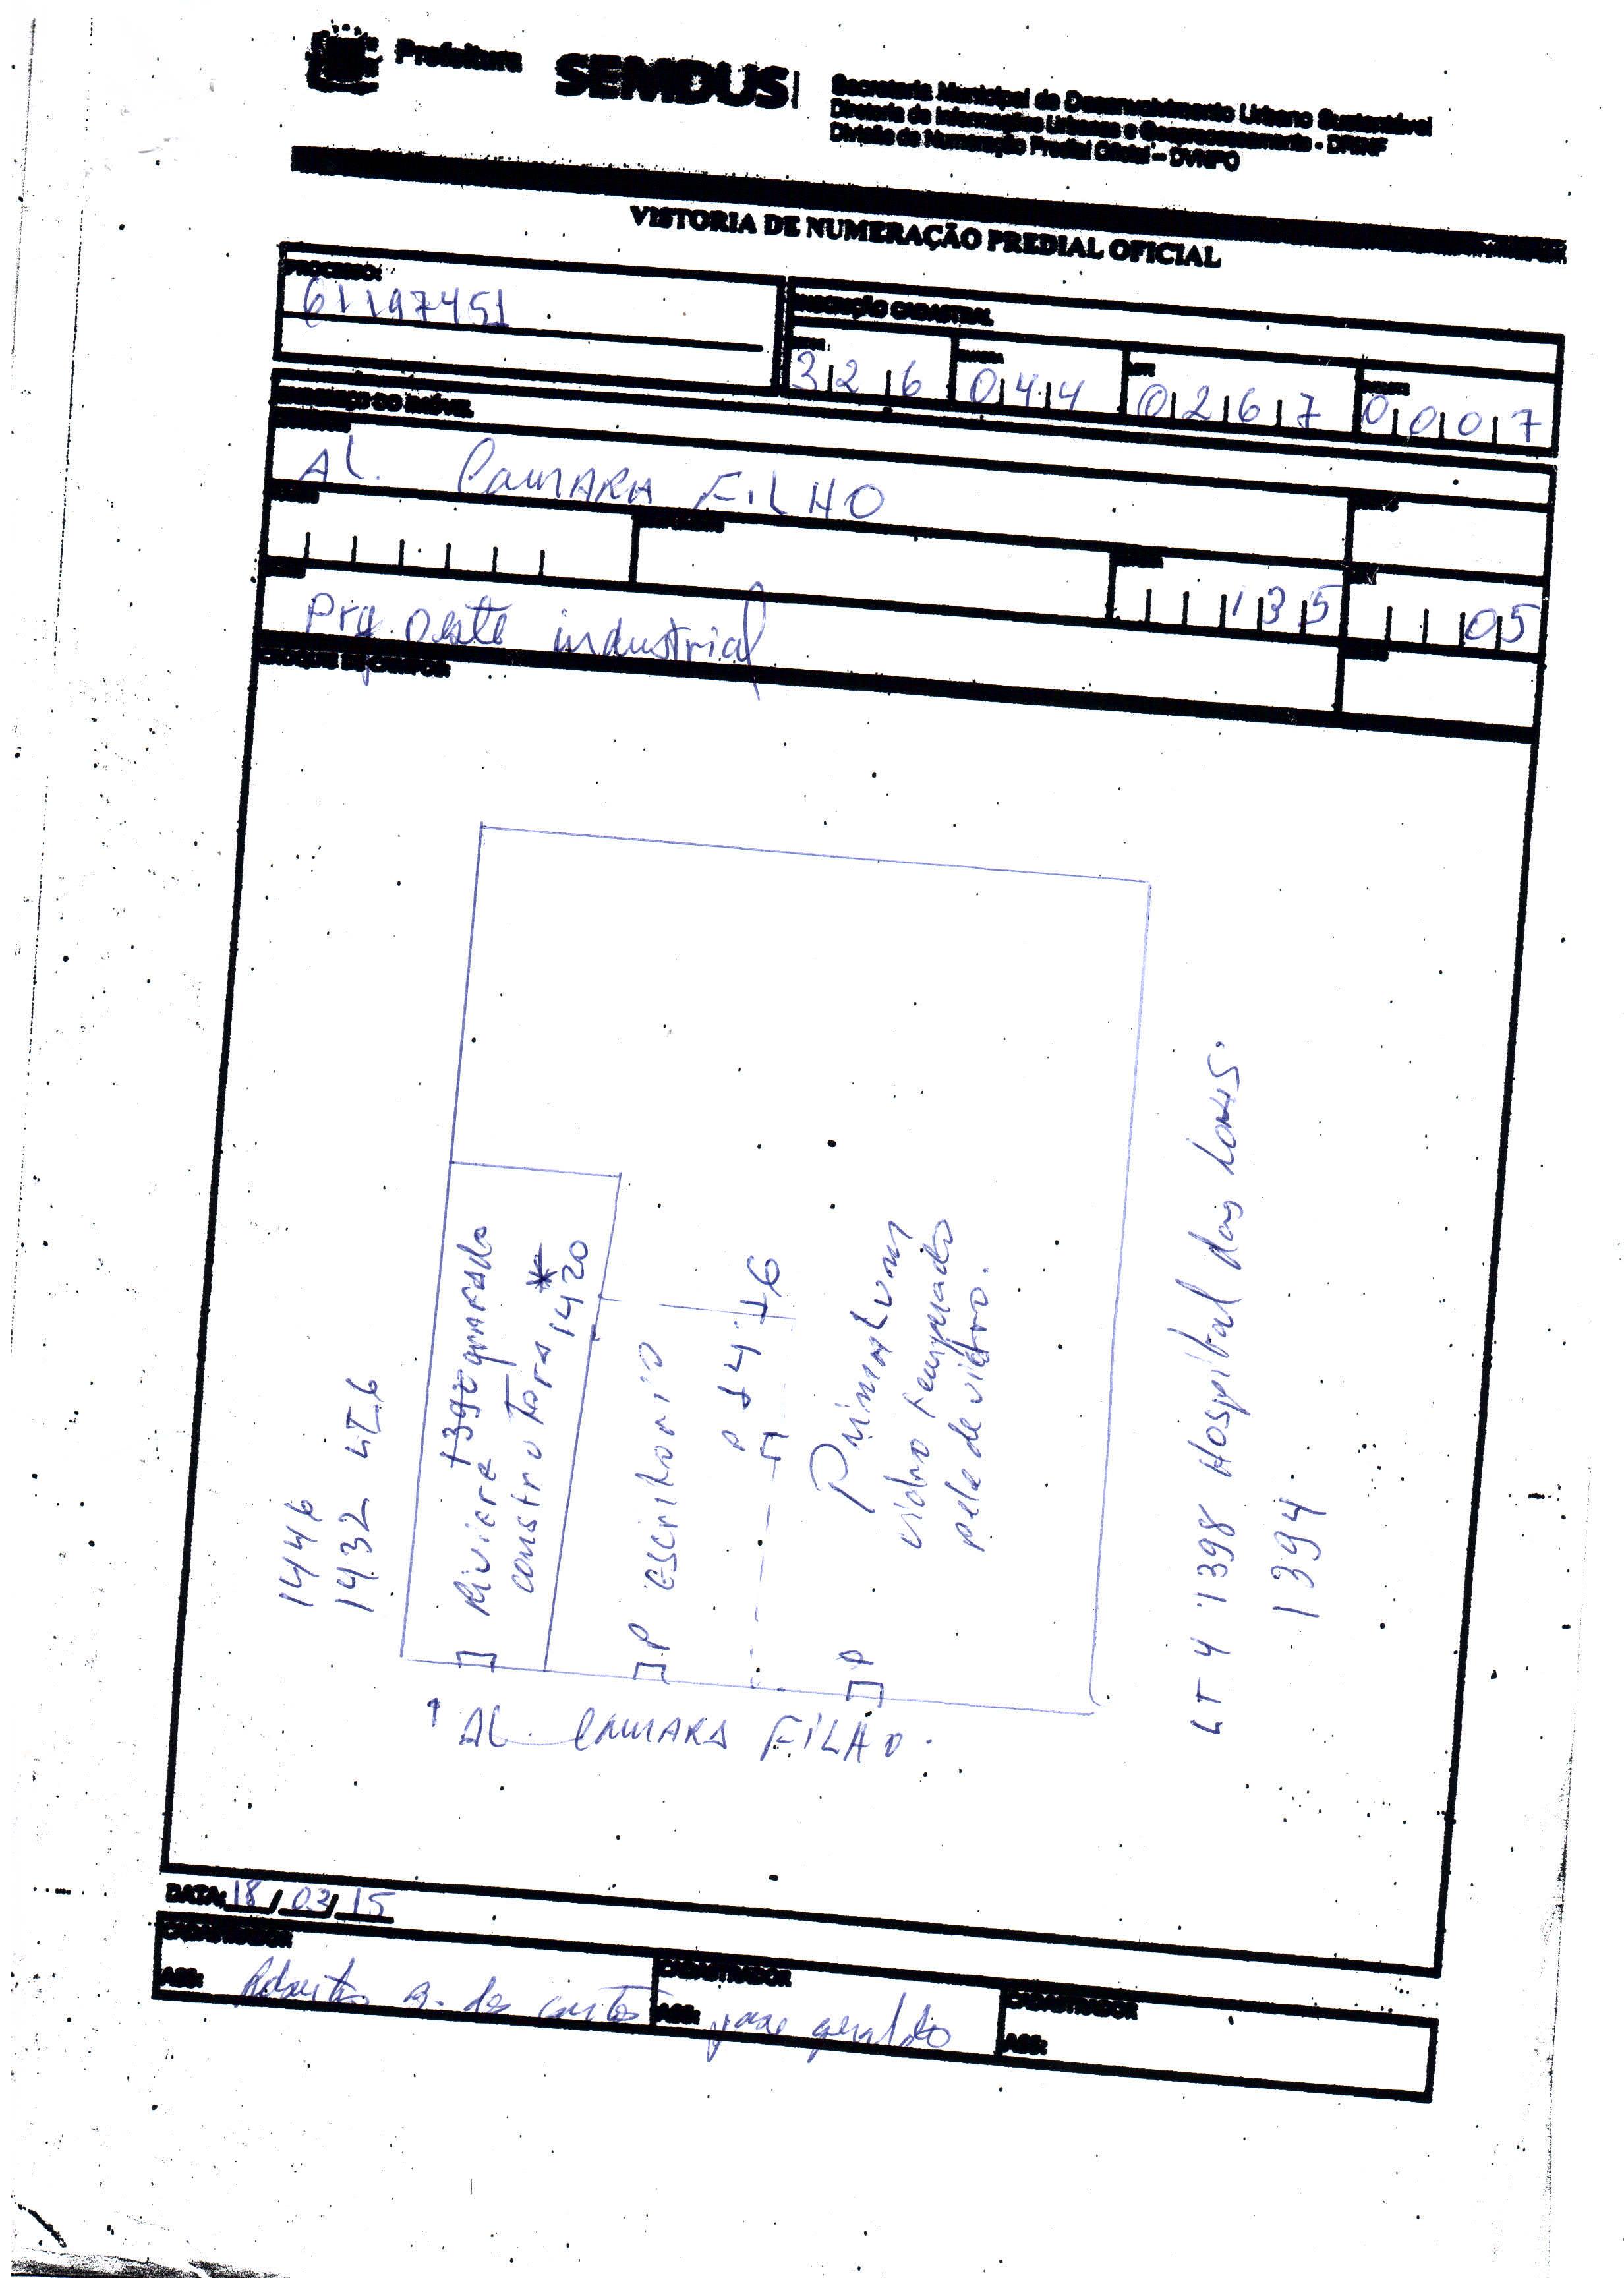 Prefeitura
SEMDUS
Secretaria Municipal de Desenvolvimento Urbano Sustentável
Diretoria de Informações Urbanas e Geoprocessamento - DRINF
Divisão de Numeração Predial Oficial – DVNPO
VISTORIA DE NUMERAÇÃO PREDIAL OFICIAL
PROCESSO:
61197451
INSCRIÇÃO CADASTRAL
326 044 0267 0007
ENDEREÇO DO IMÓVEL
AL. CAMARA FILHO
QUADRA
135 05
Prq. oeste industrial
CROQUIS DE CAMPO:
1446
1432 LT6
Riviera
construtora 1420
P escritorio
P
vidro temperado
pele de vidro.
P
LT 4 1398 Hospital das
1394
AL. CAMARA FILHO.
DATA: 18/03/15
CADASTRADOR
ASS:
CADASTRADOR
ASS: geraldo
CADASTRADOR
ASS: